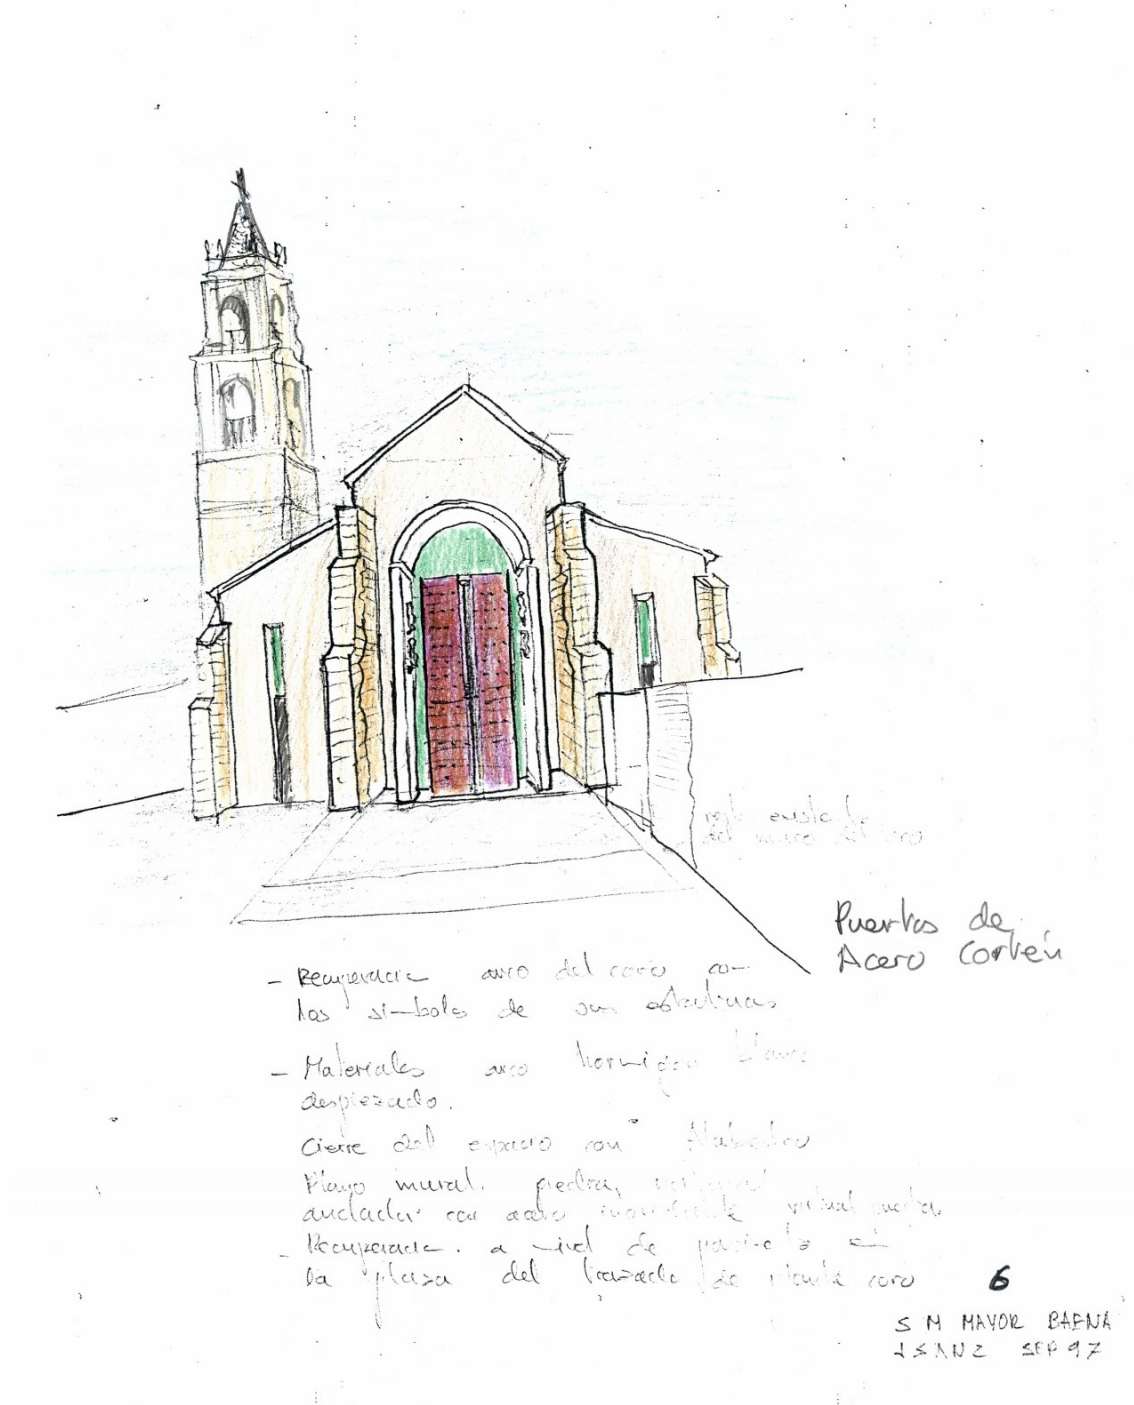 del muro del coro
Puertas de
Acero Cortén
- Recuperación arco del coro co-
los símbolos de sus
- Materiales arco hormigón blanco
despiezado.
Cierre del espacio con Alabastro
Plano mural. piedra,
anclada con acero inoxidable virtual puertas
- Recuperación. a nivel de pavi-to e-
la plaza del trazado de planta coro
6
S M MAYOR BAENA
J SANZ SEP 97